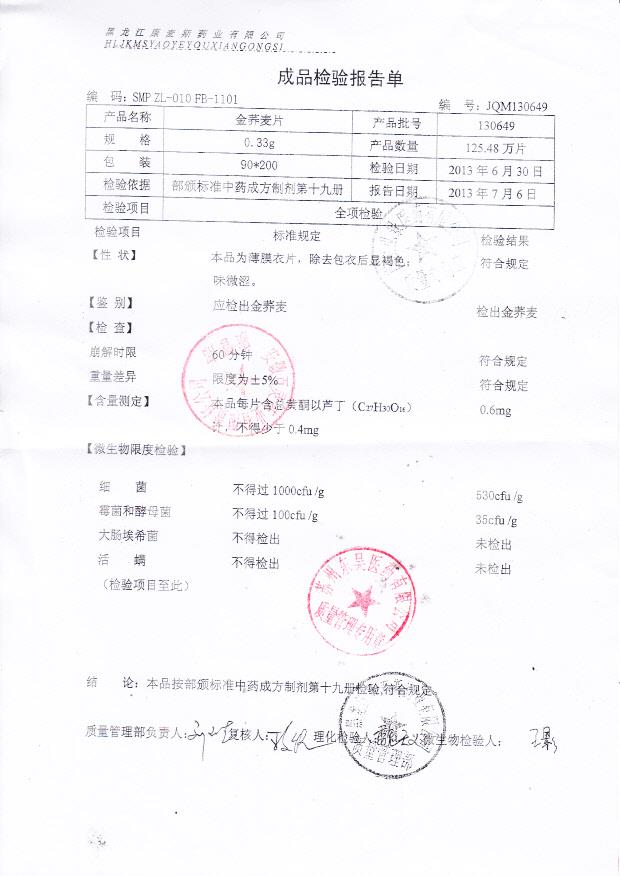 黑龙江康麦斯药业有限公司
HLJKMSYAOYEYOUXIANGONGSI
成品检验报告单
编 码：SMP ZL-010 FB-1101 编 号：JQM130649
产品名称 金荞麦片 产品批号 130649
规 格 0.33g 产品数量 125.48 万片
包 装 90*200 检验日期 2013 年 6 月 30 日
检验依据 部颁标准中药成方制剂第十九册 报告日期 2013 年 7 月 6 日
检验项目 全项检验
检验项目 标准规定 检验结果
【性 状】 本品为薄膜衣片，除去包衣后显褐色； 符合规定
味微涩。
【鉴 别】 应检出金荞麦 检出金荞麦
【检 查】
崩解时限 60 分钟 符合规定
重量差异 限度为±5% 符合规定
【含量测定】 本品每片含总黄酮以芦丁（C₂₇H₃₀O₁₆） 0.6mg
计，不得少于 0.4mg
【微生物限度检验】
细 菌 不得过 1000cfu /g 530cfu /g
霉菌和酵母菌 不得过 100cfu /g 35cfu /g
大肠埃希菌 不得检出 未检出
活 螨 不得检出 未检出
（检验项目至此）
苏州东吴医药有限公司
质量管理专用章
结 论：本品按部颁标准中药成方制剂第十九册检验,符合规定
质量管理部负责人： 复核人： 理化检验人： 微生物检验人：
质量管理部